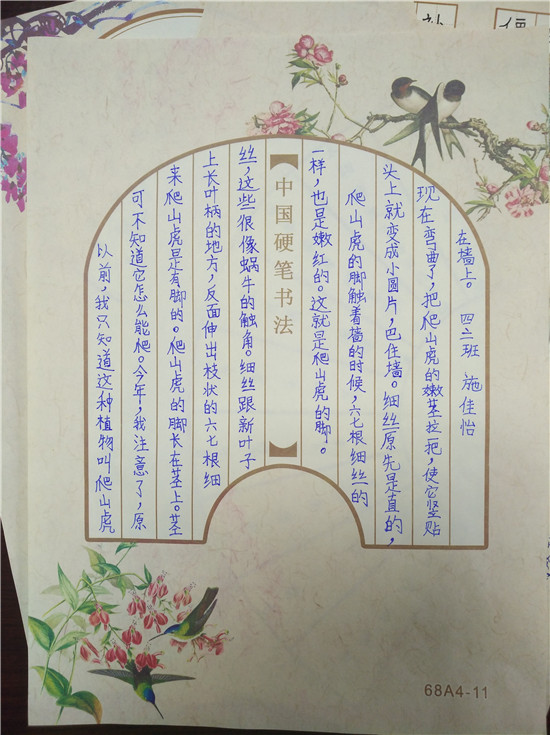 以前，我只知道这种植物叫爬山虎
可不知道它怎么能爬。今年，我注意了，原
来爬山虎是有脚的。爬山虎的脚长在茎上。茎
上长叶柄的地方，反面伸出枝状的六七根细
丝，这些很像蜗牛的触角。细丝跟新叶子
中国硬笔书法
一样，也是嫩红的。这就是爬山虎的脚。
爬山虎的脚触着墙的时候，六七根细丝的
头上就变成小圓片，巴住墙。细丝原先是直的，
现在弯曲了，把爬山虎的嫩茎拉一把，使它竖贴
在墙上。 四二班 施佳怡
68A4-11